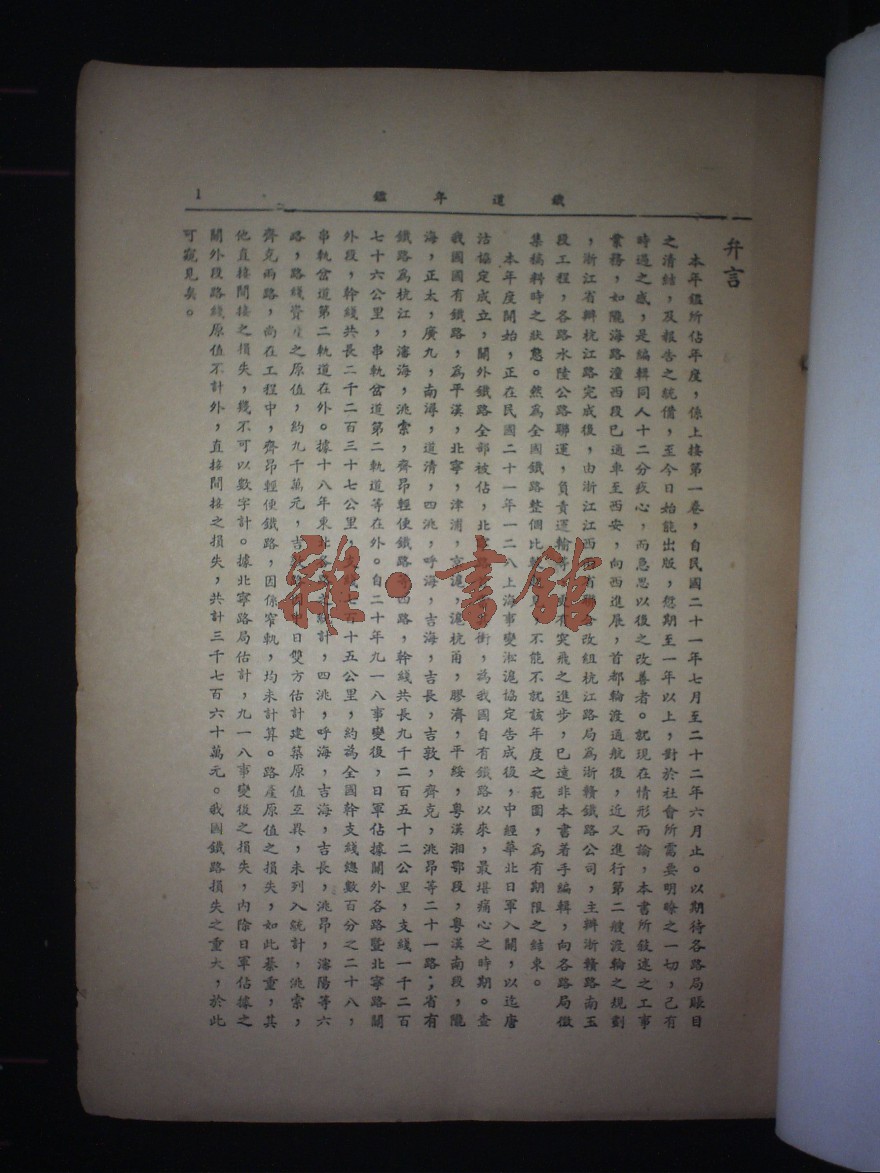 鐵道年鑑
1
弁言
本年鑑所佔年度，係上接第一卷，自民國二十一年七月至二十二年六月止。以期待各路局賬目
之清結，及報告之統備，至今日始能出版，愆期至一年以上，對於社會所需要明瞭之一切，已有
時過之感，是編輯同人十二分疚心，而急思以後之改善者。就現在情形而論，本書所敘述之工事
業務，如隴海路潼西段已通車至西安，向西進展，首都輪渡通航後，近又進行第二艘渡輪之規劃
，浙江省辦杭江路完成後，由浙江江西省改組杭江路局為浙贛鐵路公司，主辦浙贛路南玉
段工程，各路水陸公路聯運，負責運輸突飛之進步，已遠非本書著手編輯，向各路局徵
集稿料時之狀態。然為全國鐵路整個比較不能不就該年度之範圍，為有期限之結束。
本年度開始，正在民國二十一年一二八上海事變淞滬協定告成後，中經華北日軍入關，以迄唐
沽協定成立，關外鐵路全部被佔，北衝，為我國自有鐵路以來，最堪痛心之時期。查
我國國有鐵路，為平漢，北寧，津浦，京滬，滬杭甬，膠濟，平綏，粵漢湘鄂段，粵漢南段，隴
海，正太，廣九，南潯，道清，四洮，呼海，吉海，吉長，吉敦，齊克，洮昂等二十一路；省有
鐵路為杭江，瀋海，洮索，齊昂輕便鐵路等四路，幹綫共長九千二百五十二公里，支綫一千二百
七十六公里，串軌岔道第二軌道等在外。自二十年九一八事變後，日軍佔據關外各路暨北寧路關
外段，幹綫共長二千二百三十七公里，支綫七百十五公里，約為全國幹支綫總數百分之二十八，
串軌岔道第二軌道在外。據十八年東北各路統計，四洮，呼海，吉海，吉長，洮昂，瀋陽等六
路，路綫資產之原值，約九千萬元，吉敦中日雙方估計建築原值互異，未列入統計，洮索，
齊克兩路，尚在工程中，齊昂輕便鐵路，因係窄軌，均未計算。路產原值之損失，如此綦重，其
他直接間接之損失，幾不可以數字計。據北寧路局估計，九一八事變後之損失，內除日軍佔據之
關外段路綫原值不計外，直接間接之損失，共計三千七百六十萬元。我國鐵路損失之重大，於此
可窺見矣。
雜·書館